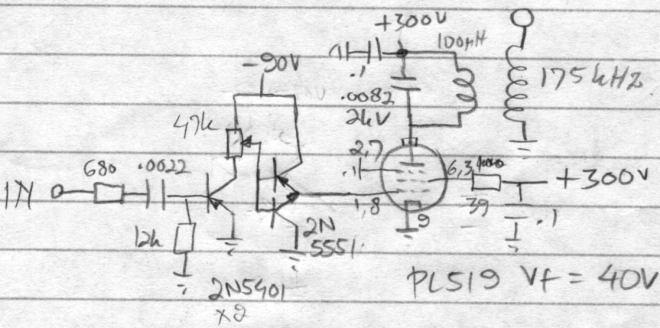 +300V
100µH
-90V
.1
.0082
2kV
175kHz
47k
680
.0022
2,7
.1
6,3
+300V
IN
1,8
39
.1
12k
2N
5551
9
2N5401
x2
PL519 Vf = 40V